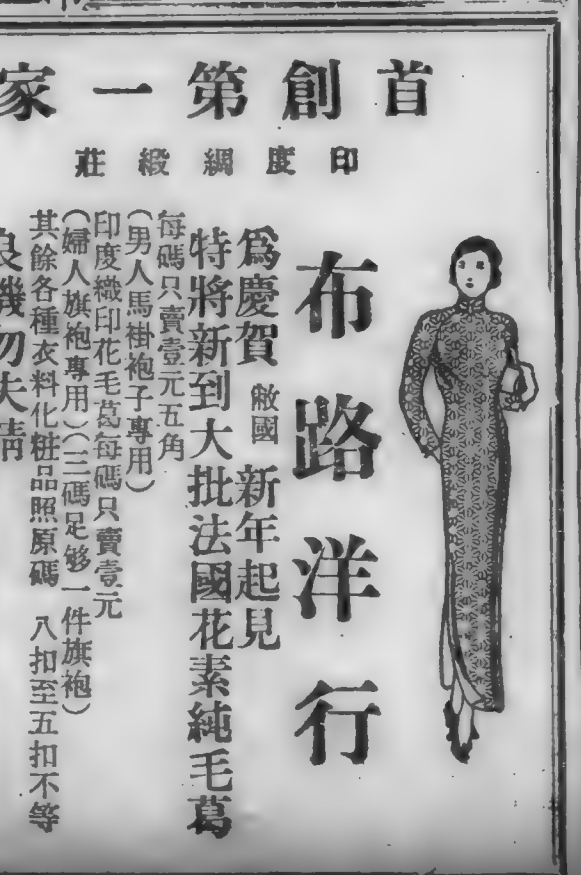 首創第一家
印度綢緞莊
布路洋行
爲慶賀 敝國 新年起見
特將新到大批法國花素純毛葛
每碼只賣壹元五角
（男人馬褂袍子專用）
印度織印花毛葛每碼只賣壹元
（婦人旗袍專用）（三碼足够一件旗袍）
其餘各種衣料化粧品照原碼 八扣至五扣不等
良機勿失請